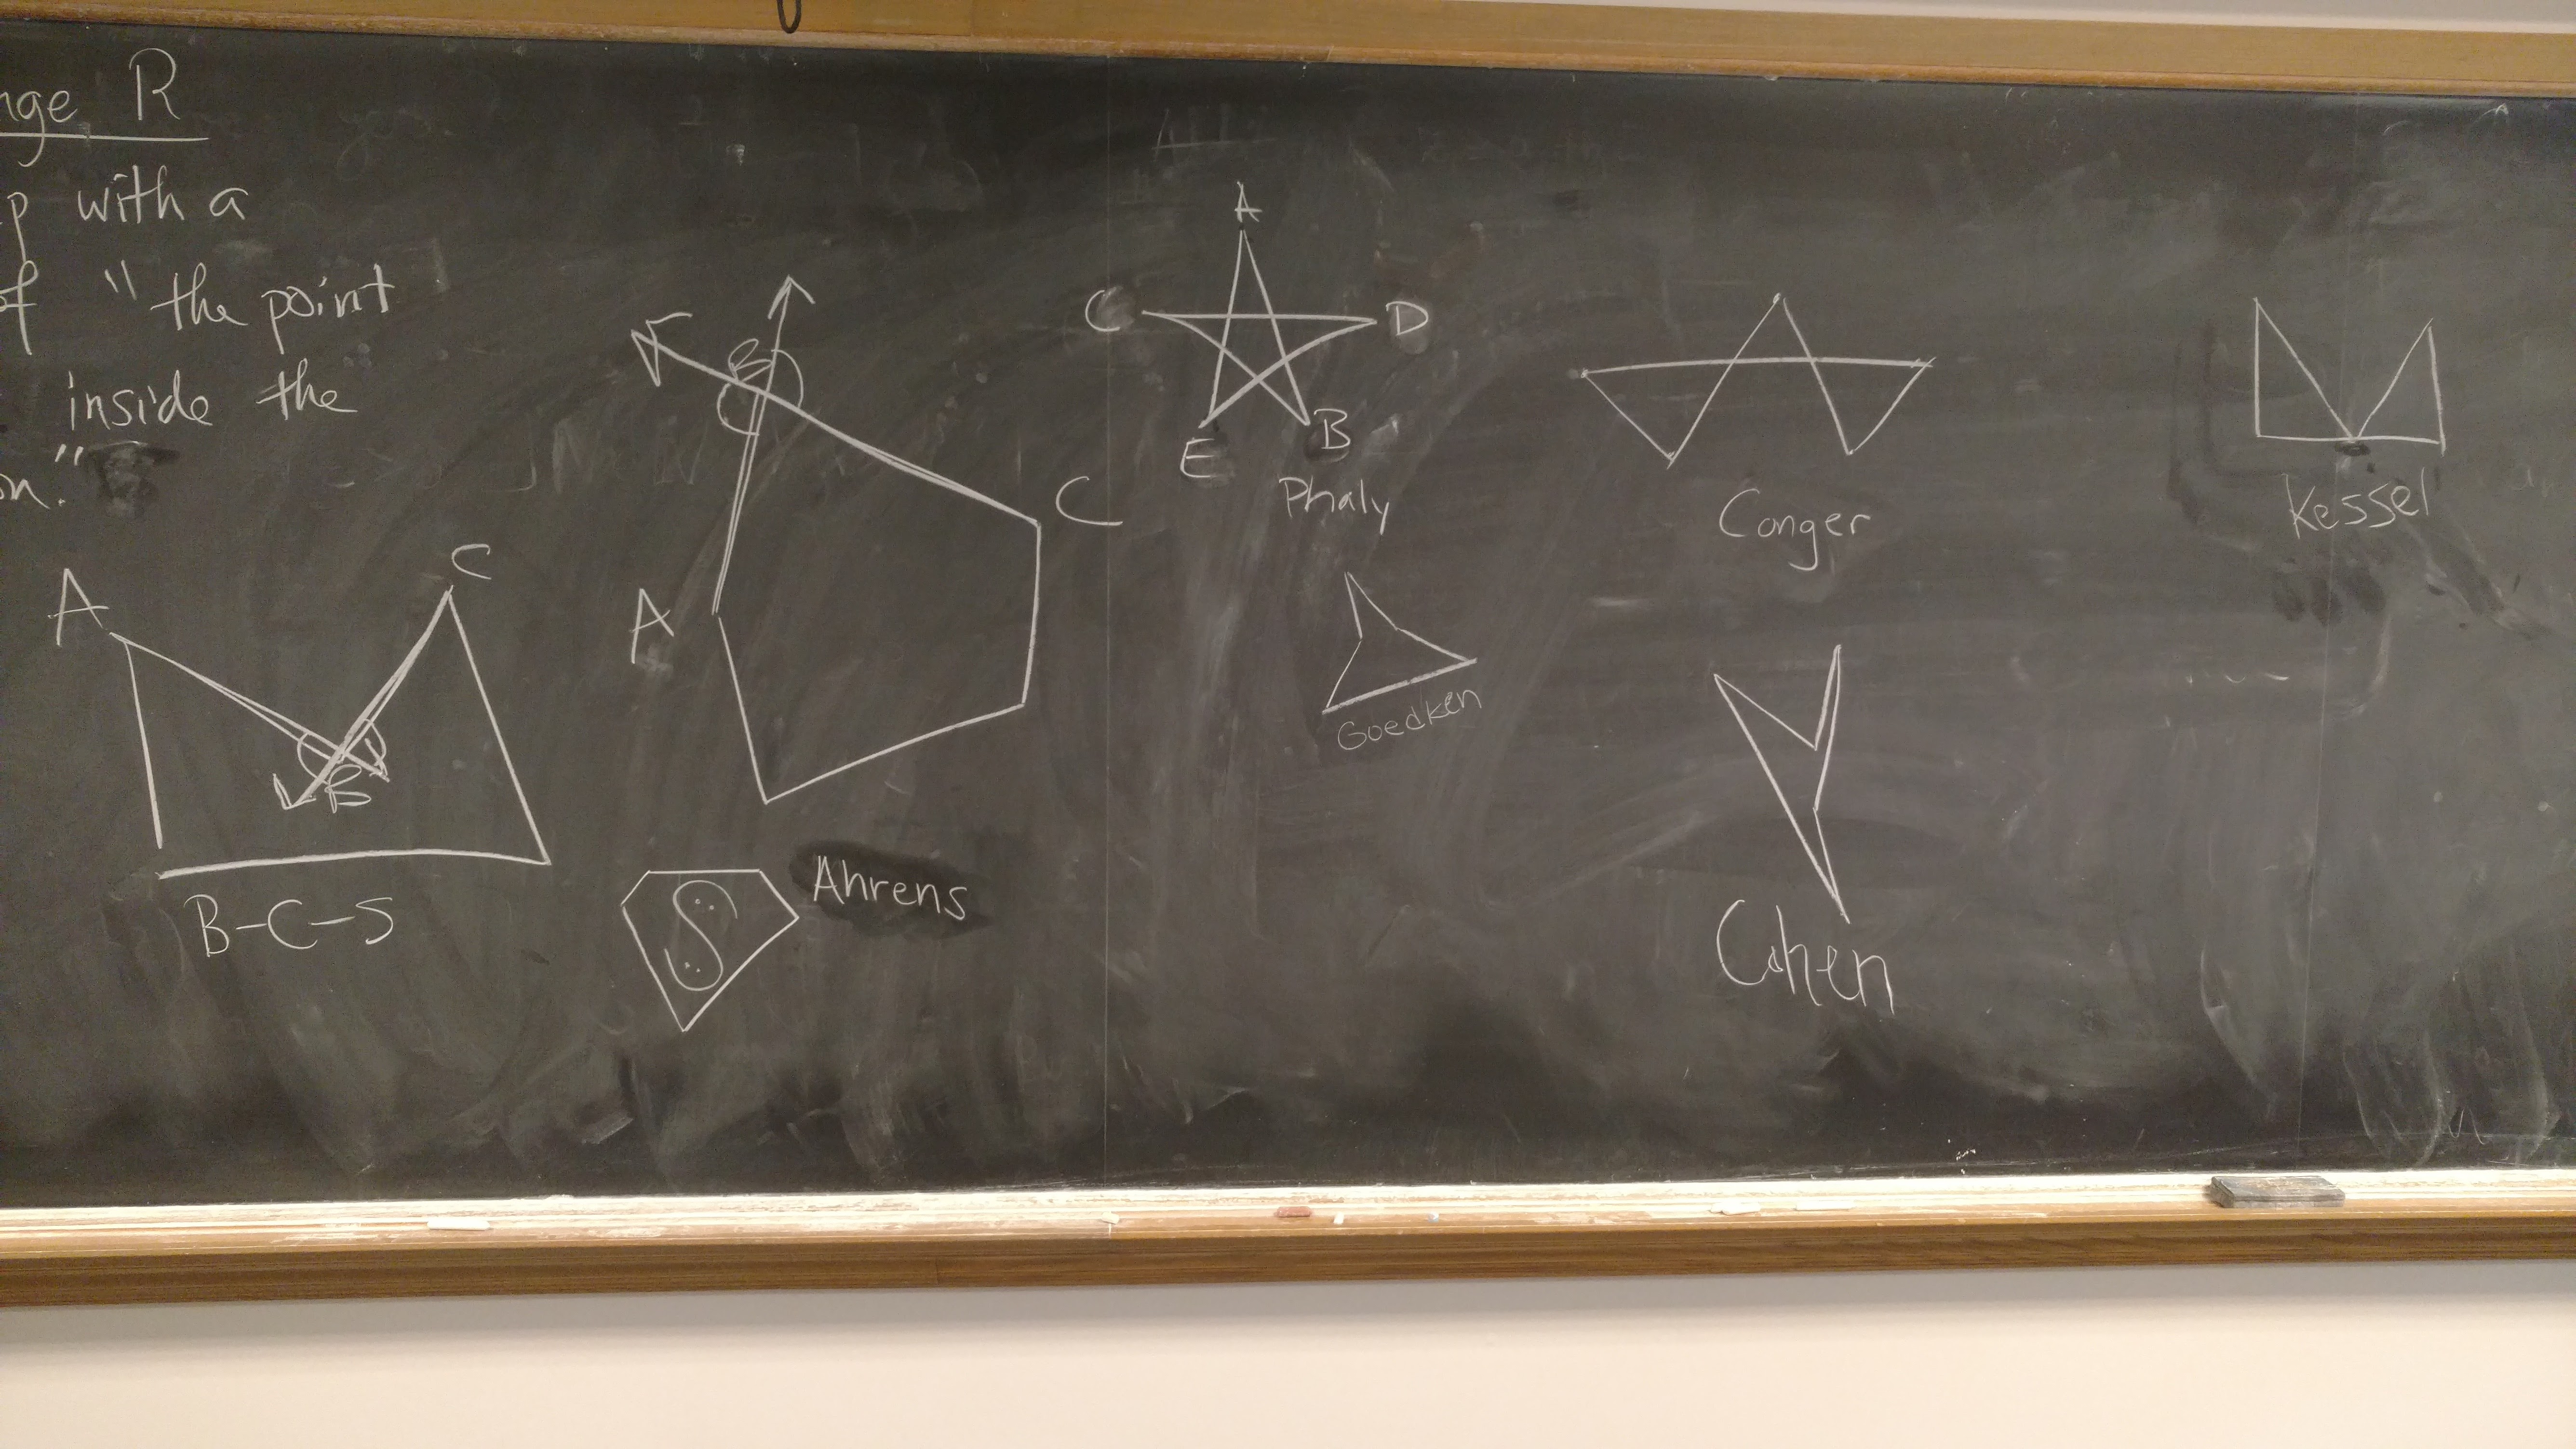 nge R
p with a
of "the point
inside the
on."
A
C
B
B-C-S
B
C
A
S
Ahrens
A
C
D
E
B
Phaly
Goedken
Conger
Cohen
Kessel